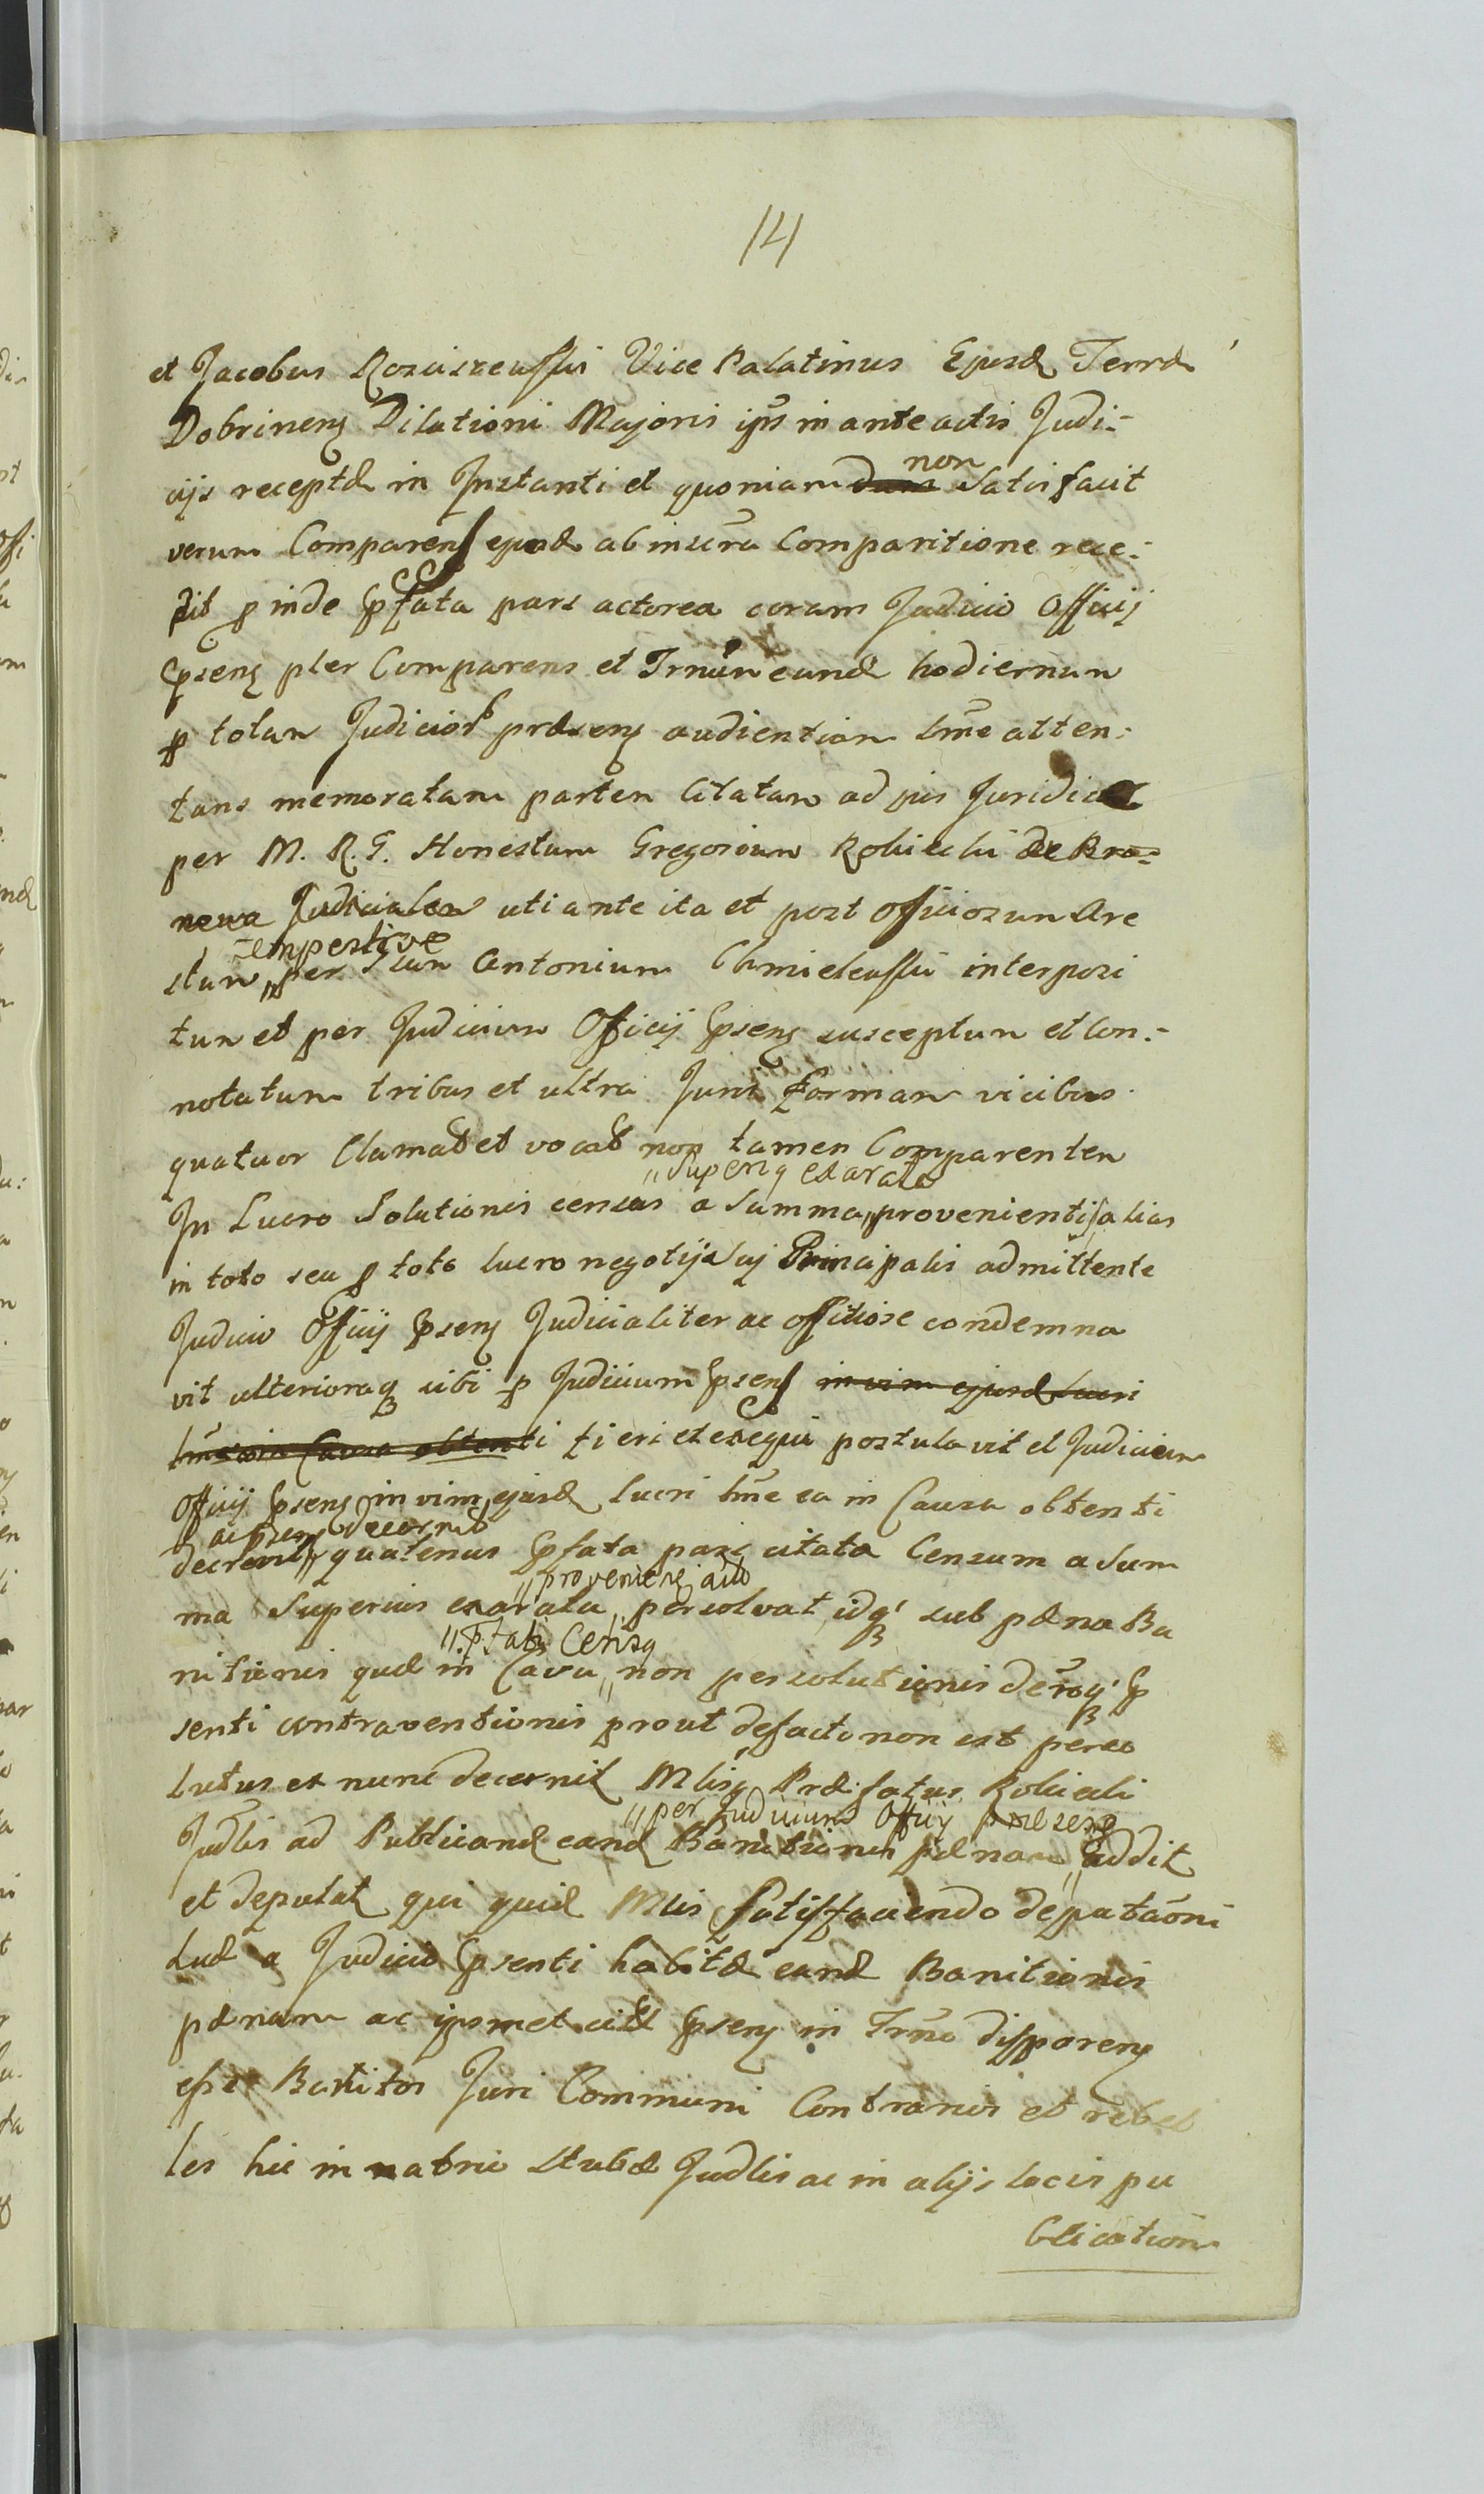 14
et Jacobus Rosciszewski Vice Palatinus Ejusd Terræ
Dobrinens Dilationi Majoris ips in ante actis Judi-
cijs receptæ in Instanti et quoniam dum non Satisfacit
verum Comparens ejusd ab inscra Comparitione rece-
dit p inde pfata pars actorea coram Judicio Officij
psens pler Comparens et Trnum eund hodiernum
p totam Judicior præsens audientiam lme atten-
tans memoratam partem Citatam ad jus Juridice
per M. R. G. Honestum Gregorium Robiecki de Bro-
newa Judicialem uti ante ita et post officiosum Are
stum tempestive per Gsum Antonium Chmielewski interposi
tum et per Judicium Officij psens susceptum et Con-
notatum tribus et ultra Juris Formam vicibus
quatuor Clamat et vocat non tamen Comparentem
In Lucro Solutionis census a Summa superiq exarata provenientis alias
in toto seu p toto lucro negotij sui Principalis admittente
Judicio Officij psens Judicialiter ac officiose condemna
vit ulterioraq sibi p Judicium psens in vim ejusd lucri
lme in Causa obtenti fieri et exequi postulavit et Judicium
Officij psens in vim ejusd lucri lme ea in Causa obtenti
decrevit ac psens decernit quatenus pfata pars citata Censum a Sum
ma Superius exarata proveniens persolvat idq sub pæna Ba
nitionis quæ in Casu pfati Censq non persolutionis deroq p
senti contraventionis prout defacto non est perso
lutus ex nunc decernit Mlisq Præfatus Robiecki
Judlis ad Publicand eand Banitionis pænam per Judicium Officij præsens addit
et deputat qui quid Mlis Satisfaciendo deputaoni
suæ a Judicio psenti habitæ eand Banitionis
pænam ac ipsmet citt psens in Trno disparens
esse Banitos Juri Communi Contrarios et rebel
les hic in atrio Stubæ Judlis ac in alijs locis pu
blication